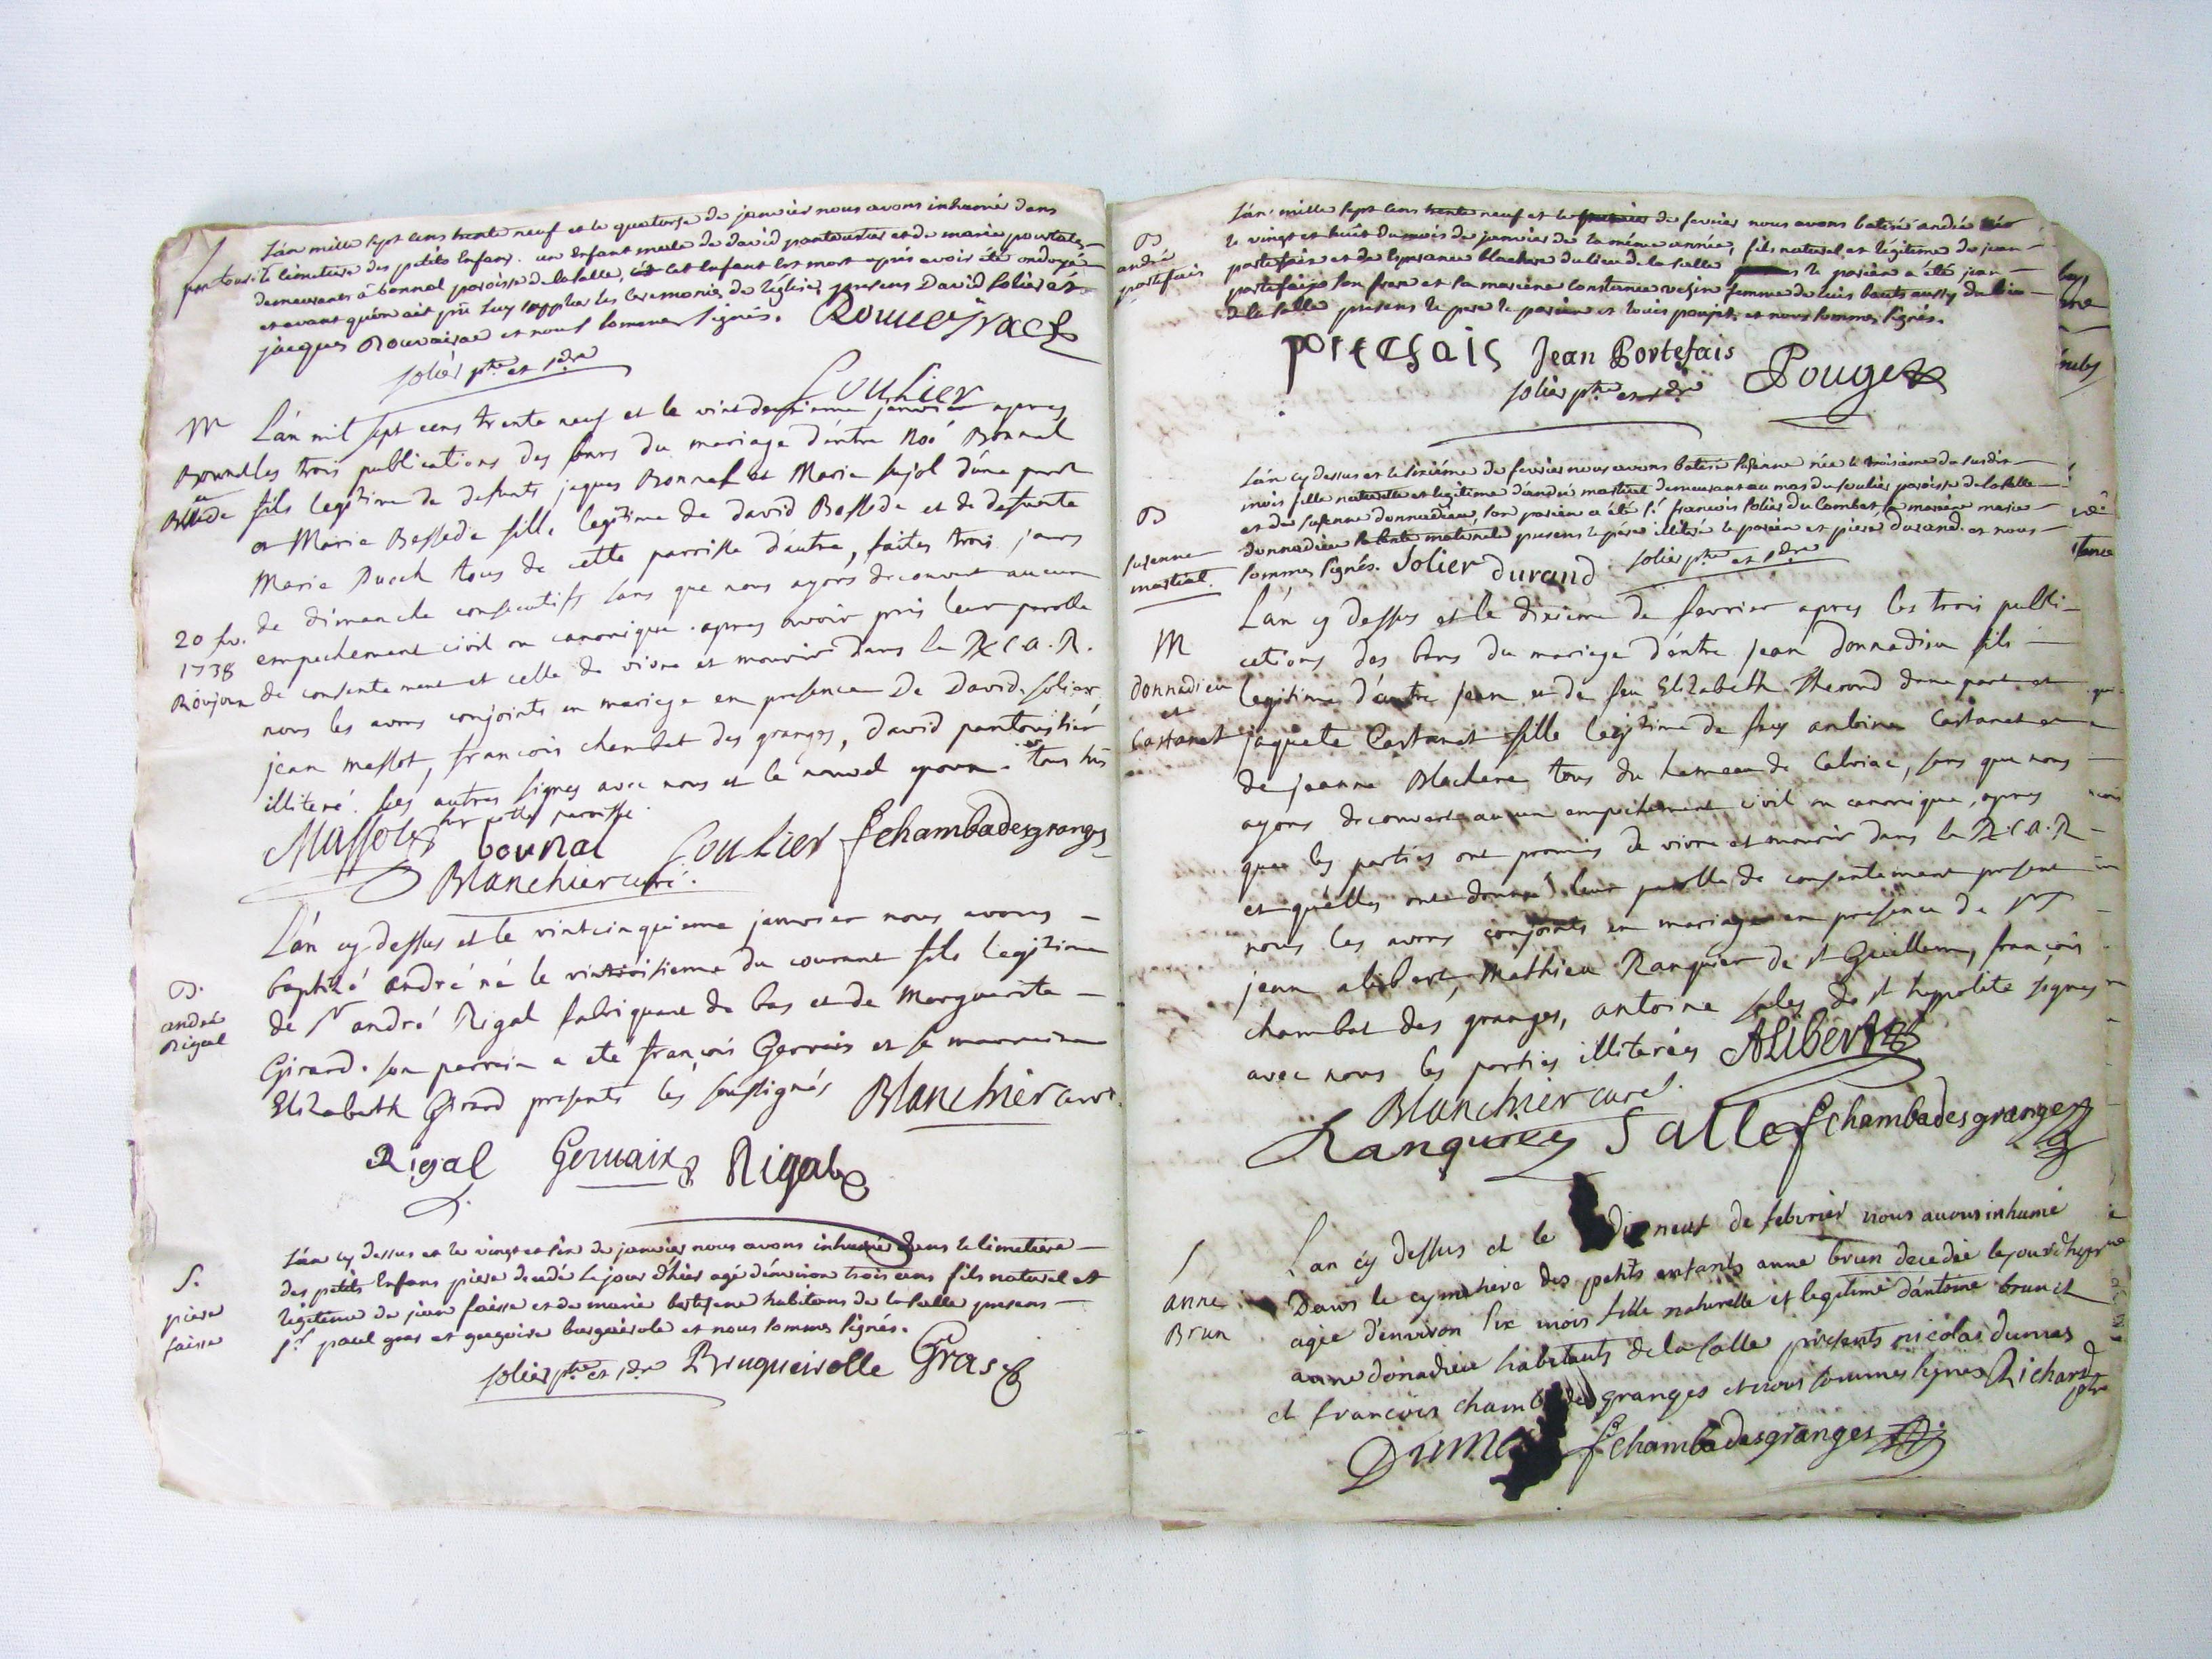 L'án mille sept cens trente neuf et le quatorse de janvier nous avons inhumé dans
le cimetiere des petits enfans. un enfant male de david pantoustier et de marie pourtales
demeurants à bonnal paroisse de lasalle, cet enfant est mort aprés avoir été ondoyé
et avant qu'on ait pû luy supplier les ceremonies de l'église, presens David Solier et
jacques Rouveirac et nous sommes signés. Rouveirac
Solier ptre et sdre
Soulier
M
Bonnal
et
Bessede
L'án mil sept cens trente neuf et le vint deusieme janvier apres
les trois publications des bans du mariage d'éntre Noé Bonnal
fils legitime de defunts jaques Bonnal et Marie Pujol d'úne part
et Marie Bessede fille legitime de David Bessede et de defunte
Marie Puech tous de cette parroisse d'autre, faites trois jours
de dimanche consecutifs sans que nous ayons decouvert aucun
20 fev.
1738
empechement civil ou canonique. apres avoir pris leur parolle
de consentement et celle de vivre et mourir dans la R. C. A. R.
nous les avons conjoints en mariage en presence De David Solier
jean massot, françois chambat des granges, david pantoustier
illiteré. les autres signes avec nous et le nouvel epoux. tous de
cette parroisse.
Massot bounal Soulier fchambadesgranges
Blanchier curé.
B.
andré
Rigal
L'án cy dessus et le vintcinquieme janvier nous avons
baptizé andré né le vintroisieme du courant fils legitime
de sr andré Rigal fabriquant de bas et de Marguerite
Girard. son parrein a eté françois Gervais et sa marraine
Elizabeth Girard presents les soussignés Blanchier curé.
Rigal Gervaix Rigal
S.
piere
faisse
L'án cy dessus et le vingt et six de janvier nous avons inhumé dans le cimetiere
des petits enfans piere decedé le jour d'hier agé d'environ trois ans fils naturel et
légitime de jean faisse et de marie bertezene habitans de lasalle presens
sr. paul gras et gregoire burguirole et nous sommes signés.
Solier ptre et sdre Brugueirolle Gras
B
andré
portefais
L'án mille sept cens trente neuf et le premier de fevrier nous avons batisé andré né
le vingt et huit du mois de janvier de la même année, fils naturel et légitime de jean
portefaix et de susanne blachere du lieu de la salle le parein a été jean
portefaix son frere et sa mareine constance vezin femme de louis bouts aussy du lieu
de la salle presens le pere le parein et louis pouget et nous sommes signés.
portefais Jean Portefais Pouget
Solier ptre et sdre
B
susanne
martial.
L'án cy dessus et le sixiéme de fevrier nous avons batisé susanne née le troisieme du susdit
mois fille naturelle et legitime d'andré martial demeurant au mas du soulier paroisse de lasalle
et de susanne donnadieu, son parein a été sr. francois Solier du Combet, sa mareine marie
donnadieu sa tante maternele presens le pére illitéré le parein et piere durand. et nous
sommes signés. Solier durand Solier ptre et sdre
M
donnadieu
et
Castanet
L'án cy dessus et le dixieme de fevrier apres les trois publi-
cations des bans du mariage d'éntre jean Donnadieu fils
legitime d'autre jean et de feu Elizabeth Therond d'une part et
jaquete Castanet fille legitime de feu antoine Castanet et
de jeanne Blachere tous du hameau de Calviac, sans que nous
ayons decouvert aucun empechement civil ou canonique, apres
que les parties ont promis de vivre et mourir dans la R. C. A. R
et qu'élles ont donné leur parolle de consentement present
nous les avons conjoints en mariage en presence de Mrs
jean alibert, Mathieu Ranquier de st Guillem, françois
chambat des granges, antoine sales de st hypolite signes
avec nous les parties illiterées Alibert
Blanchier curé.
Ranquier Salle fchambadesgranges
anne
Brun
Lan cy dessus et le dix neuf de febvrier nous avons inhumé
Dans le cymetiere des petits enfants anne brun decedée le jour d'hyer
agée d'environ six mois fille naturelle et legitime d'antoine brun et
anne donadieu habitants de la salle presents nicolas dumas
et francois chamba des granges et nous sommes signés Richard
ptre
Dumas fchambadesgranges